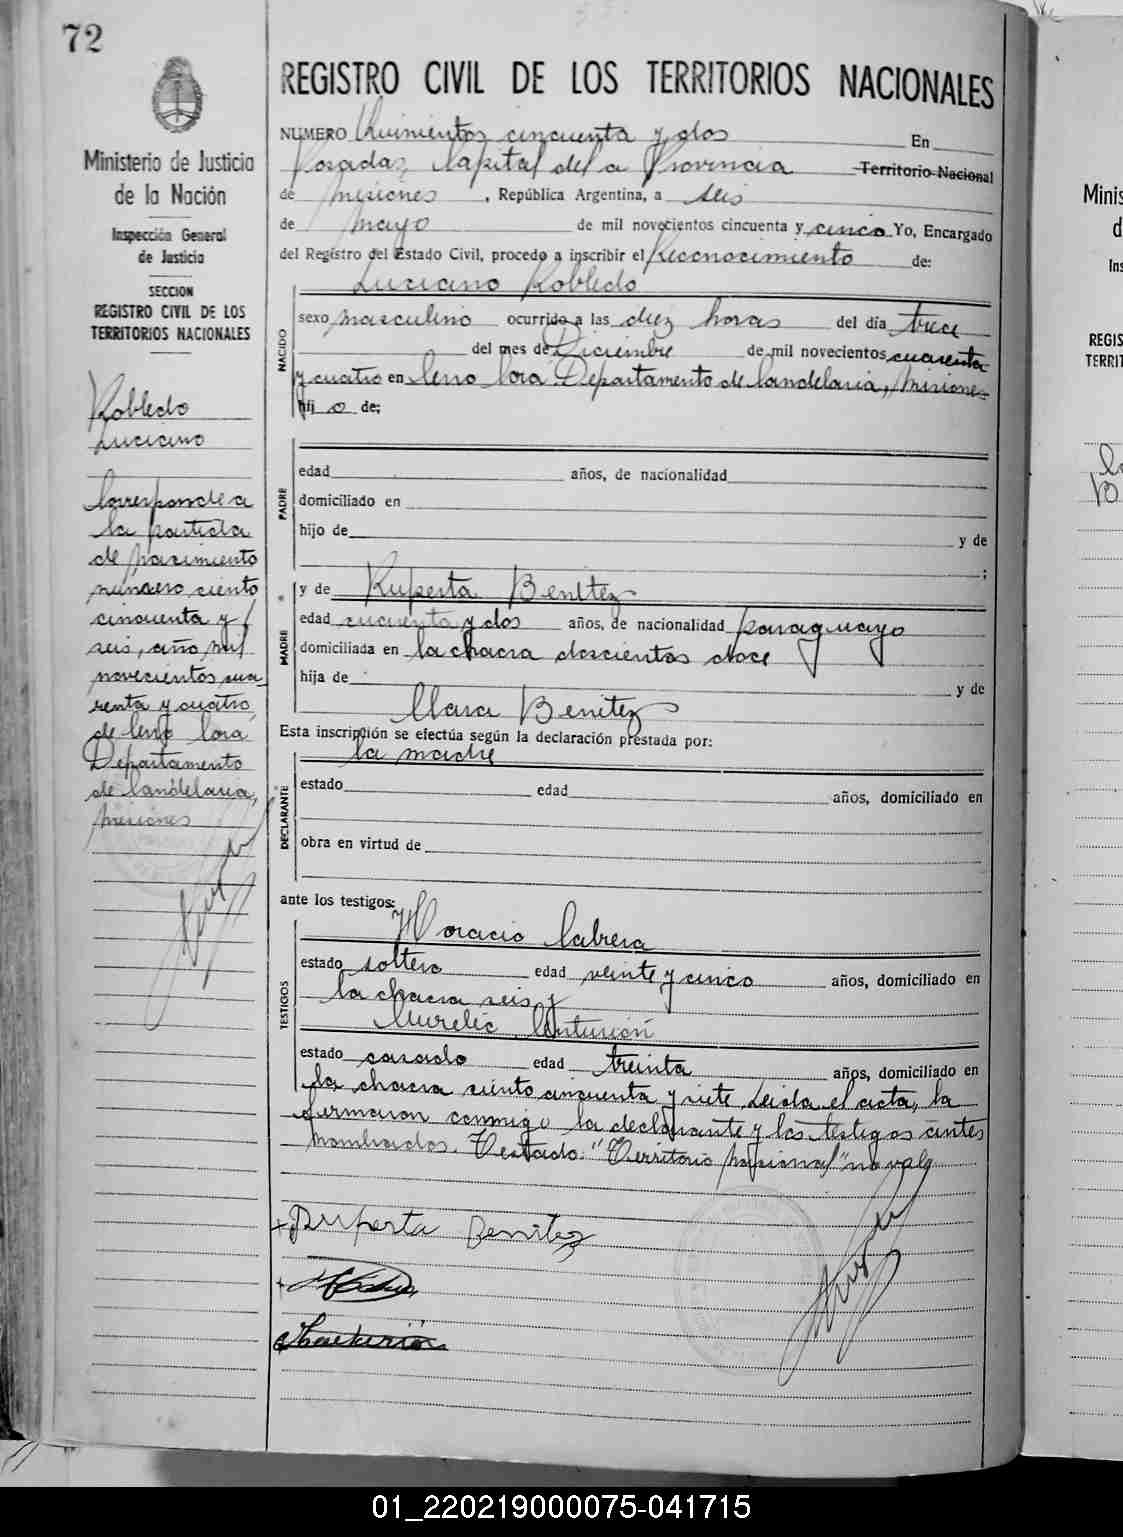 72
Ministerio de Justicia
de la Nación
Inspección General
de Justicia
SECCION
REGISTRO CIVIL DE LOS
TERRITORIOS NACIONALES
Robledo
Luciano
Corresponde a
la partida
de nacimiento
número ciento
cincuenta y
seis, año mil
novecientos cua
renta y cuatro,
de Cerro Corá
Departamento
de Candelaria,
Misiones
REGISTRO CIVIL DE LOS TERRITORIOS NACIONALES
NUMERO Quinientos cincuenta y dos En
Posadas, Capital de la Provincia Territorio Nacional
de Misiones, República Argentina, a seis
de mayo de mil novecientos cincuenta y cinco Yo, Encargado
del Registro del Estado Civil, procedo a inscribir el Reconocimiento de:
Luciano Robledo
NACIDO
sexo masculino ocurrido a las diez horas del día trece
del mes de Diciembre de mil novecientos cuarenta
y cuatro en Cerro Cora Departamento de Candelaria, Misiones
hijo de:
PADRE
edad años, de nacionalidad
domiciliado en
hijo de y de
;
MADRE
y de Ruperta Benítez
edad cuarenta y dos años, de nacionalidad paraguayo
domiciliada en la chacra doscientos doce
hija de y de
Clara Benítez
Esta inscripción se efectúa según la declaración prestada por:
la madre
DECLARANTE
estado edad años, domiciliado en
obra en virtud de
ante los testigos:
TESTIGOS
Horacio Cabrera
estado soltero edad veinte y cinco años, domiciliado en
la chacra seis y
Aurelio Centurión
estado casado edad treinta años, domiciliado en
la chacra ciento cincuenta y siete. Leída el acta, la
firmaron conmigo la declarante y los testigos antes
nombrados. Testado: "Territorio Nacional" no vale
Ruperta Benitez
Centurión
Minis
d
Ins
REGIS
TERRIT
01_220219000075-041715